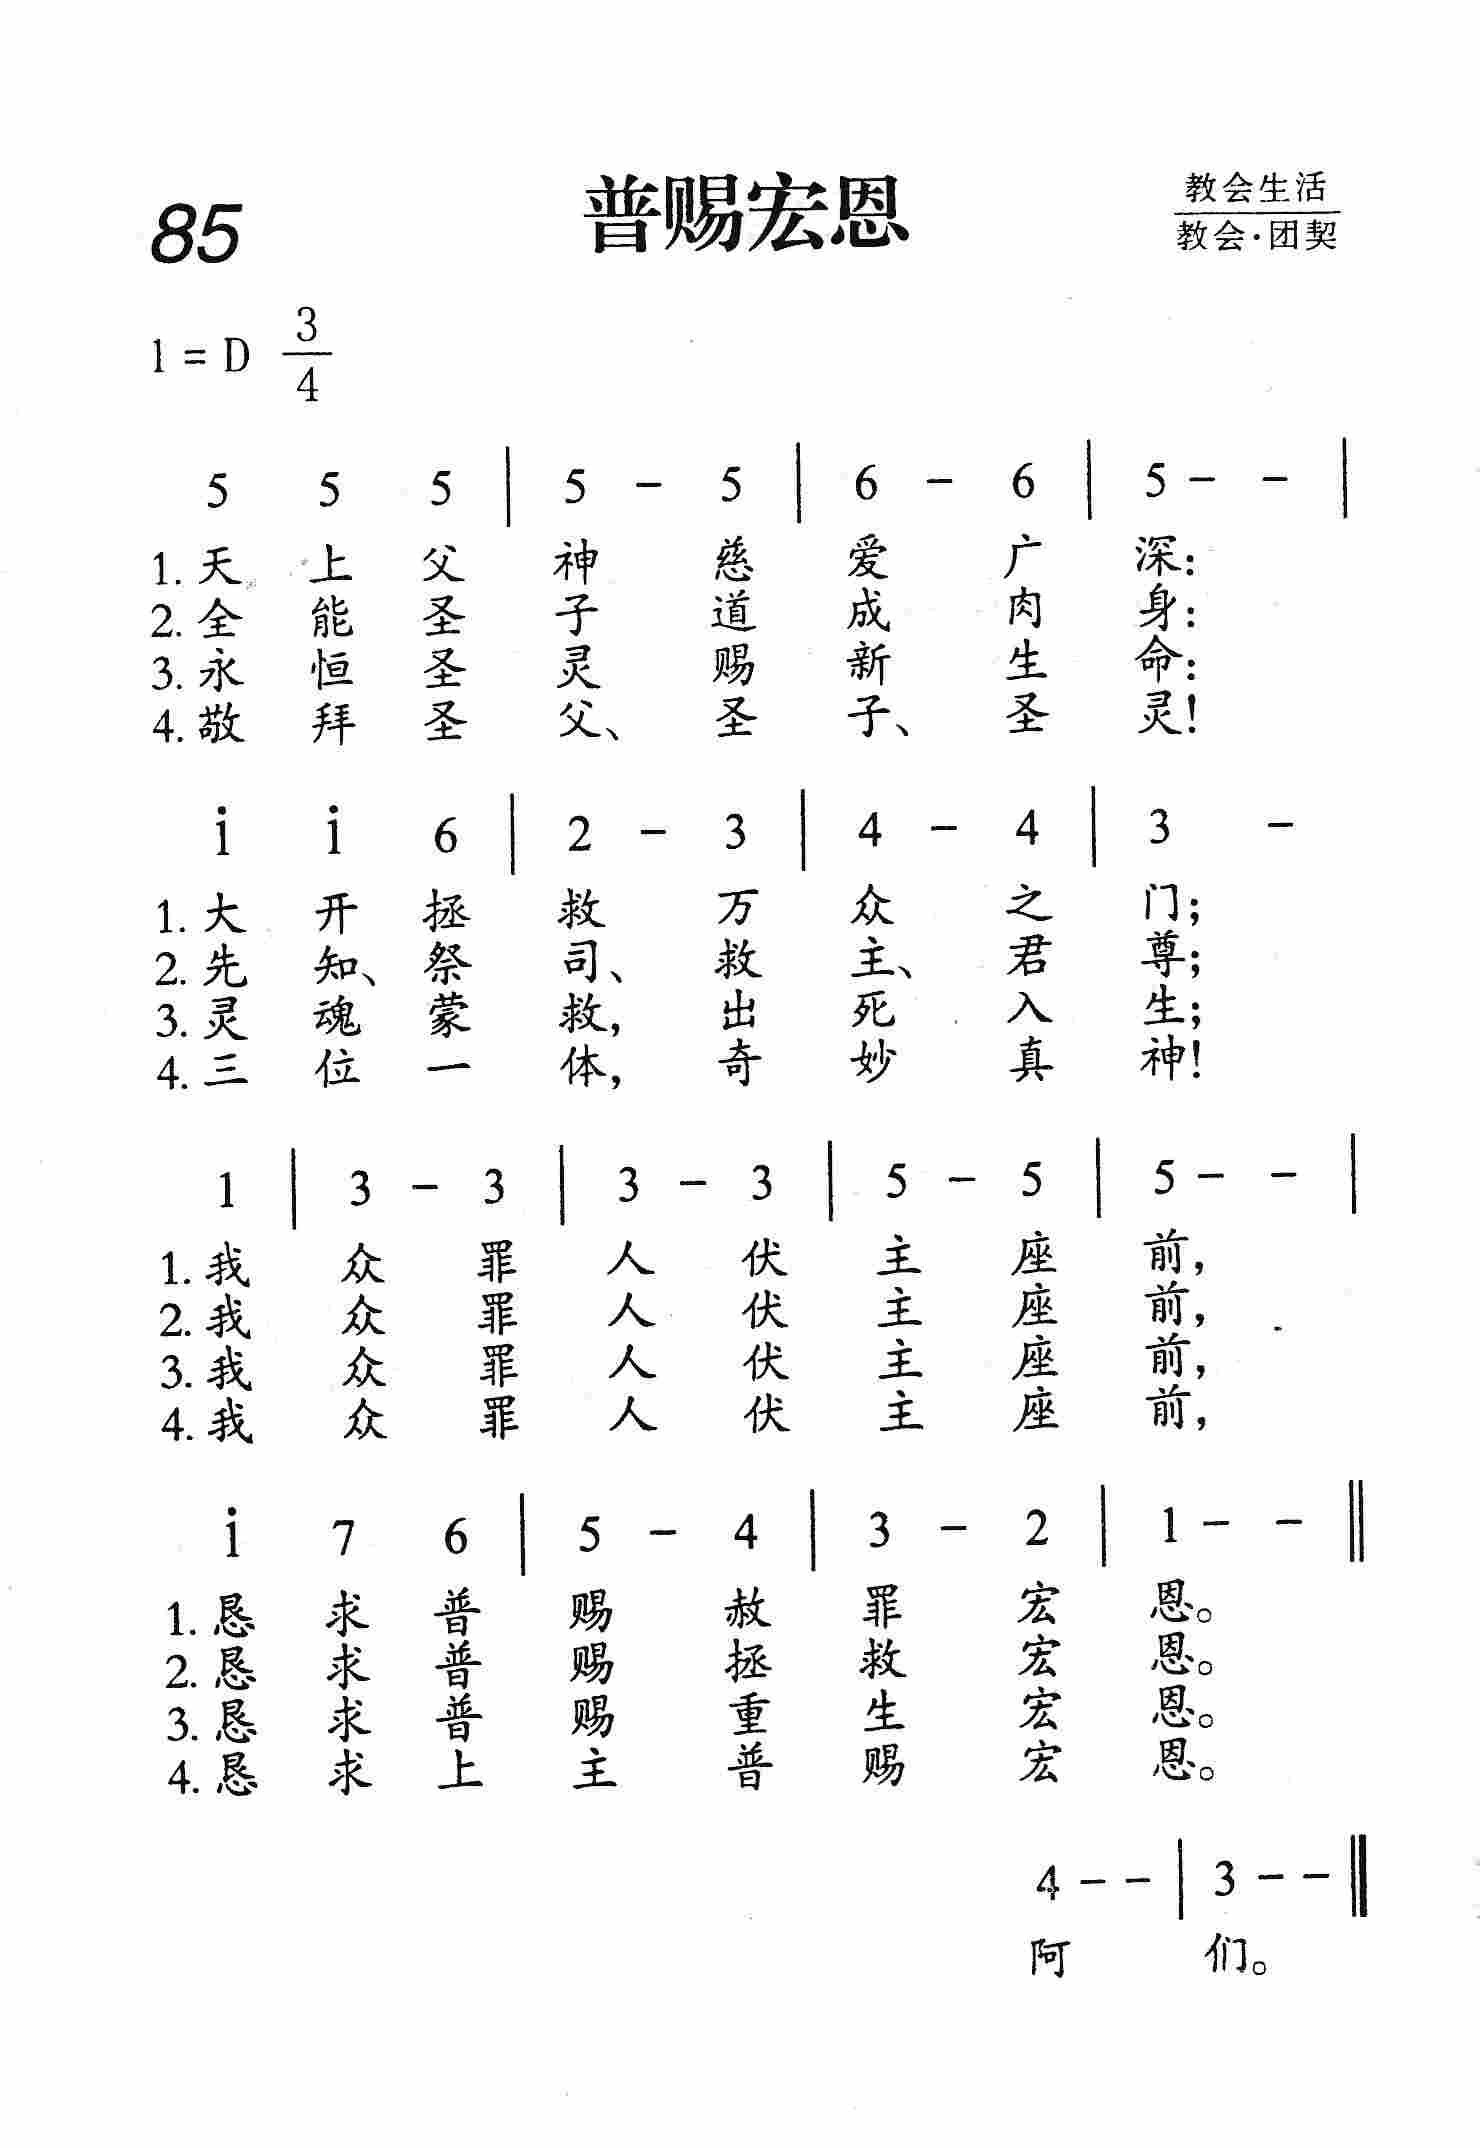 85
普赐宏恩
教会生活
教会·团契
1 = D 3/4
5 5 5 | 5 - 5 | 6 - 6 | 5 - - |
1. 天上父神慈爱广深：
2. 全能圣子道成肉身：
3. 永恒圣灵赐新生命：
4. 敬拜圣父、圣子、圣灵！
i i 6 | 2 - 3 | 4 - 4 | 3 -
1. 大开拯救万众之门；
2. 先知、祭司、救主、君尊；
3. 灵魂蒙救，出死入生；
4. 三位一体，奇妙真神！
1 | 3 - 3 | 3 - 3 | 5 - 5 | 5 - - |
1. 我众罪人伏主座前，
2. 我众罪人伏主座前，
3. 我众罪人伏主座前，
4. 我众罪人伏主座前，
i 7 6 | 5 - 4 | 3 - 2 | 1 - - ‖
1. 恳求普赐赦罪宏恩。
2. 恳求普赐拯救宏恩。
3. 恳求普赐重生宏恩。
4. 恳求上主普赐宏恩。
4 - - | 3 - - ‖
阿们。